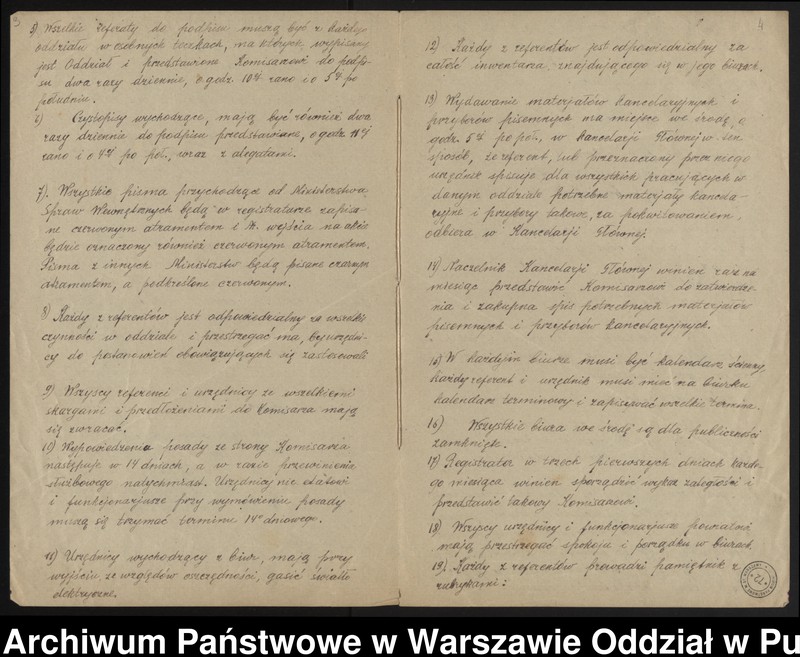 3
5) Wszelkie referaty do podpisu muszą być z każdego
oddziału w osobnych teczkach, na których wypisany
jest Oddział i przedstawione Komisarzowi do podpi-
su dwa razy dziennie, o godz. 10 rano i o 5 po
południu.
6) Czystopisy wychodzące, mają być również dwa
razy dziennie do podpisu przedstawione, o godz. 11
rano i o 4 po poł., wraz z alegatami.
7). Wszystkie pisma przychodzące od Ministerstwa
Spraw Wewnętrznych będą w registraturze zapisa-
ne czerwonym atramentem i N. wejścia na akcie
będzie oznaczony również czerwonym atramentem.
Pisma z innych Ministerstw będą pisane czarnym
atramentem, a podkreślone czerwonym.
8) Każdy z referentów jest odpowiedzialny za wszelkie
czynności w oddziale i przestrzegać ma, by urzędni-
cy do postanowień obowiązujących się zastosowali
9) Wszyscy referenci i urzędnicy ze wszelkiemi
skargami i przedłożeniami do Komisarza mają
się zwracać.
10) Wypowiedzenia posady ze strony Komisarza
następuje w 14 dniach, a w razie przewinienia
służbowego natychmiast. Urzędnicy nie etatowi
i funkcjonarjusze przy wymówieniu posady
muszą się trzymać terminu 14 dniowego.
11) Urzędnicy wychodzący z biur, mają przy
wyjściu, ze względów oszczędności, gasić światło
elektryczne.
4
12) Każdy z referentów jest odpowiedzialny za
całość inwentarza, znajdującego się w jego biurach.
13) Wydawanie materjałów kancelaryjnych i
przyborów pisemnych ma miejsce we środę, o
godz. 5 po poł., w Kancelarji Głównej w ten
sposób, że referent, lub przeznaczony przez niego
urzędnik spisuje dla wszystkich pracujących w
danym oddziale potrzebne materjały kancela-
ryjne i przybory takowe, za pokwitowaniem,
odbiera w Kancelarji Głównej.
14) Naczelnik Kancelarji Głównej winien raz na
miesiąc przedstawić Komisarzowi do zatwierdze-
nia i zakupna spis potrzebnych materjałów
pisemnych i przyborów kancelaryjnych.
15) W każdym biurze musi być kalendarz ścienny,
każdy referent i urzędnik musi mieć na biurku
kalendarz terminowy i zapisywać wszelkie termina.
16) Wszystkie biura we środę są dla publiczności
zamknięte.
17) Registrator w trzech pierwszych dniach każde-
go miesiąca winien sporządzić wykaz zaległości i
przedstawić takowy Komisarzowi.
18) Wszyscy urzędnicy i funkcjonarjusze powinni
mają przestrzegać spokoju i porządku w biurach.
19) Każdy z referentów prowadzi pamiętnik z
rubrykami:
72
Archiwum Państwowe w Warszawie Oddział w Pu